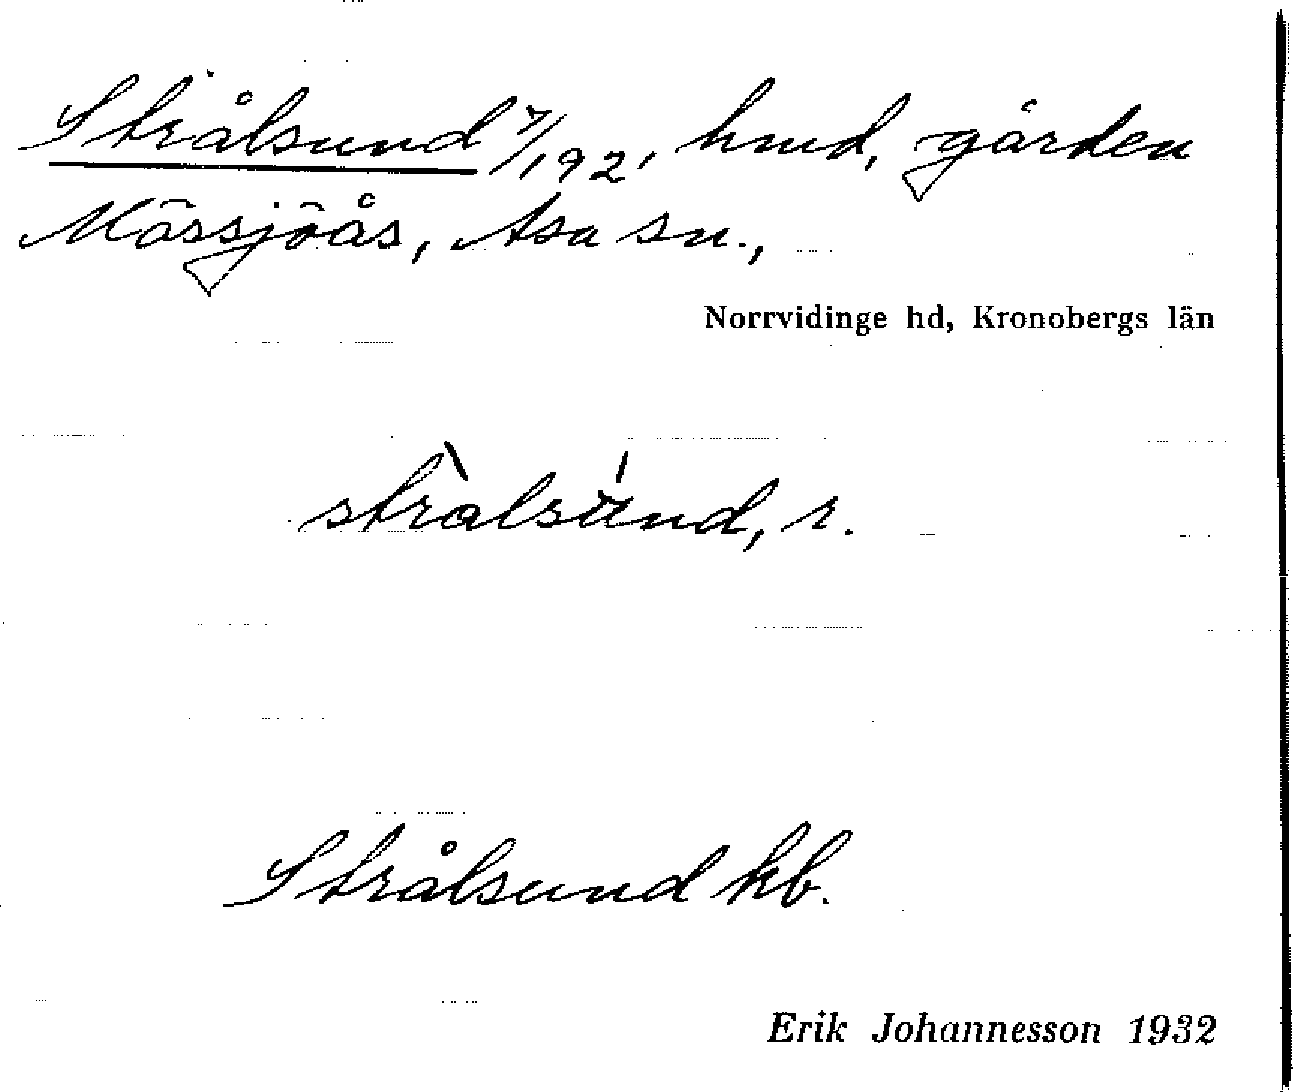 Strålsund 7/192, hmd, gården
Mässjöås, Asa sn.,
Norrvidinge hd, Kronobergs län
stràlsünd, r.
Strålsund kb.
Erik Johannesson 1932